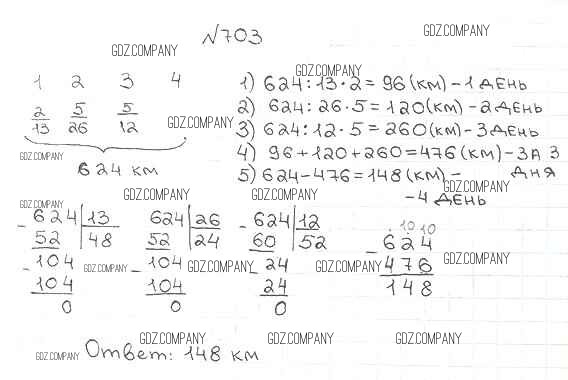 №703
GDZ.COMPANY
GDZ.COMPANY
GDZ.COMPANY
1 2 3 4
2/13 5/26 5/12
GDZ.COMPANY
GDZ.COMPANY
624 км
1) 624:13·2=96(км)-1 ДЕНЬ
2) 624:26·5=120(км)-2 ДЕНЬ
3) 624:12·5=260(км)-3 ДЕНЬ
4) 96+120+260=476(км)-ЗА 3 ДНЯ
5) 624-476=148(км)-
GDZ.COMPANY
-4 ДЕНЬ
GDZ.COMPANY
GDZ.COMPANY
-624|13
52 |48
-104
104
0
624|26
52 |24
-104
104
0
-624|12
60 |52
-24
24
0
10 10
-624
476
148
GDZ.COMPANY
GDZ.COMPANY
GDZ.COMPANY
GDZ.COMPANY
GDZ.COMPANY
GDZ.COMPANY
GDZ.COMPANY
GDZ.COMPANY
Ответ: 148 км